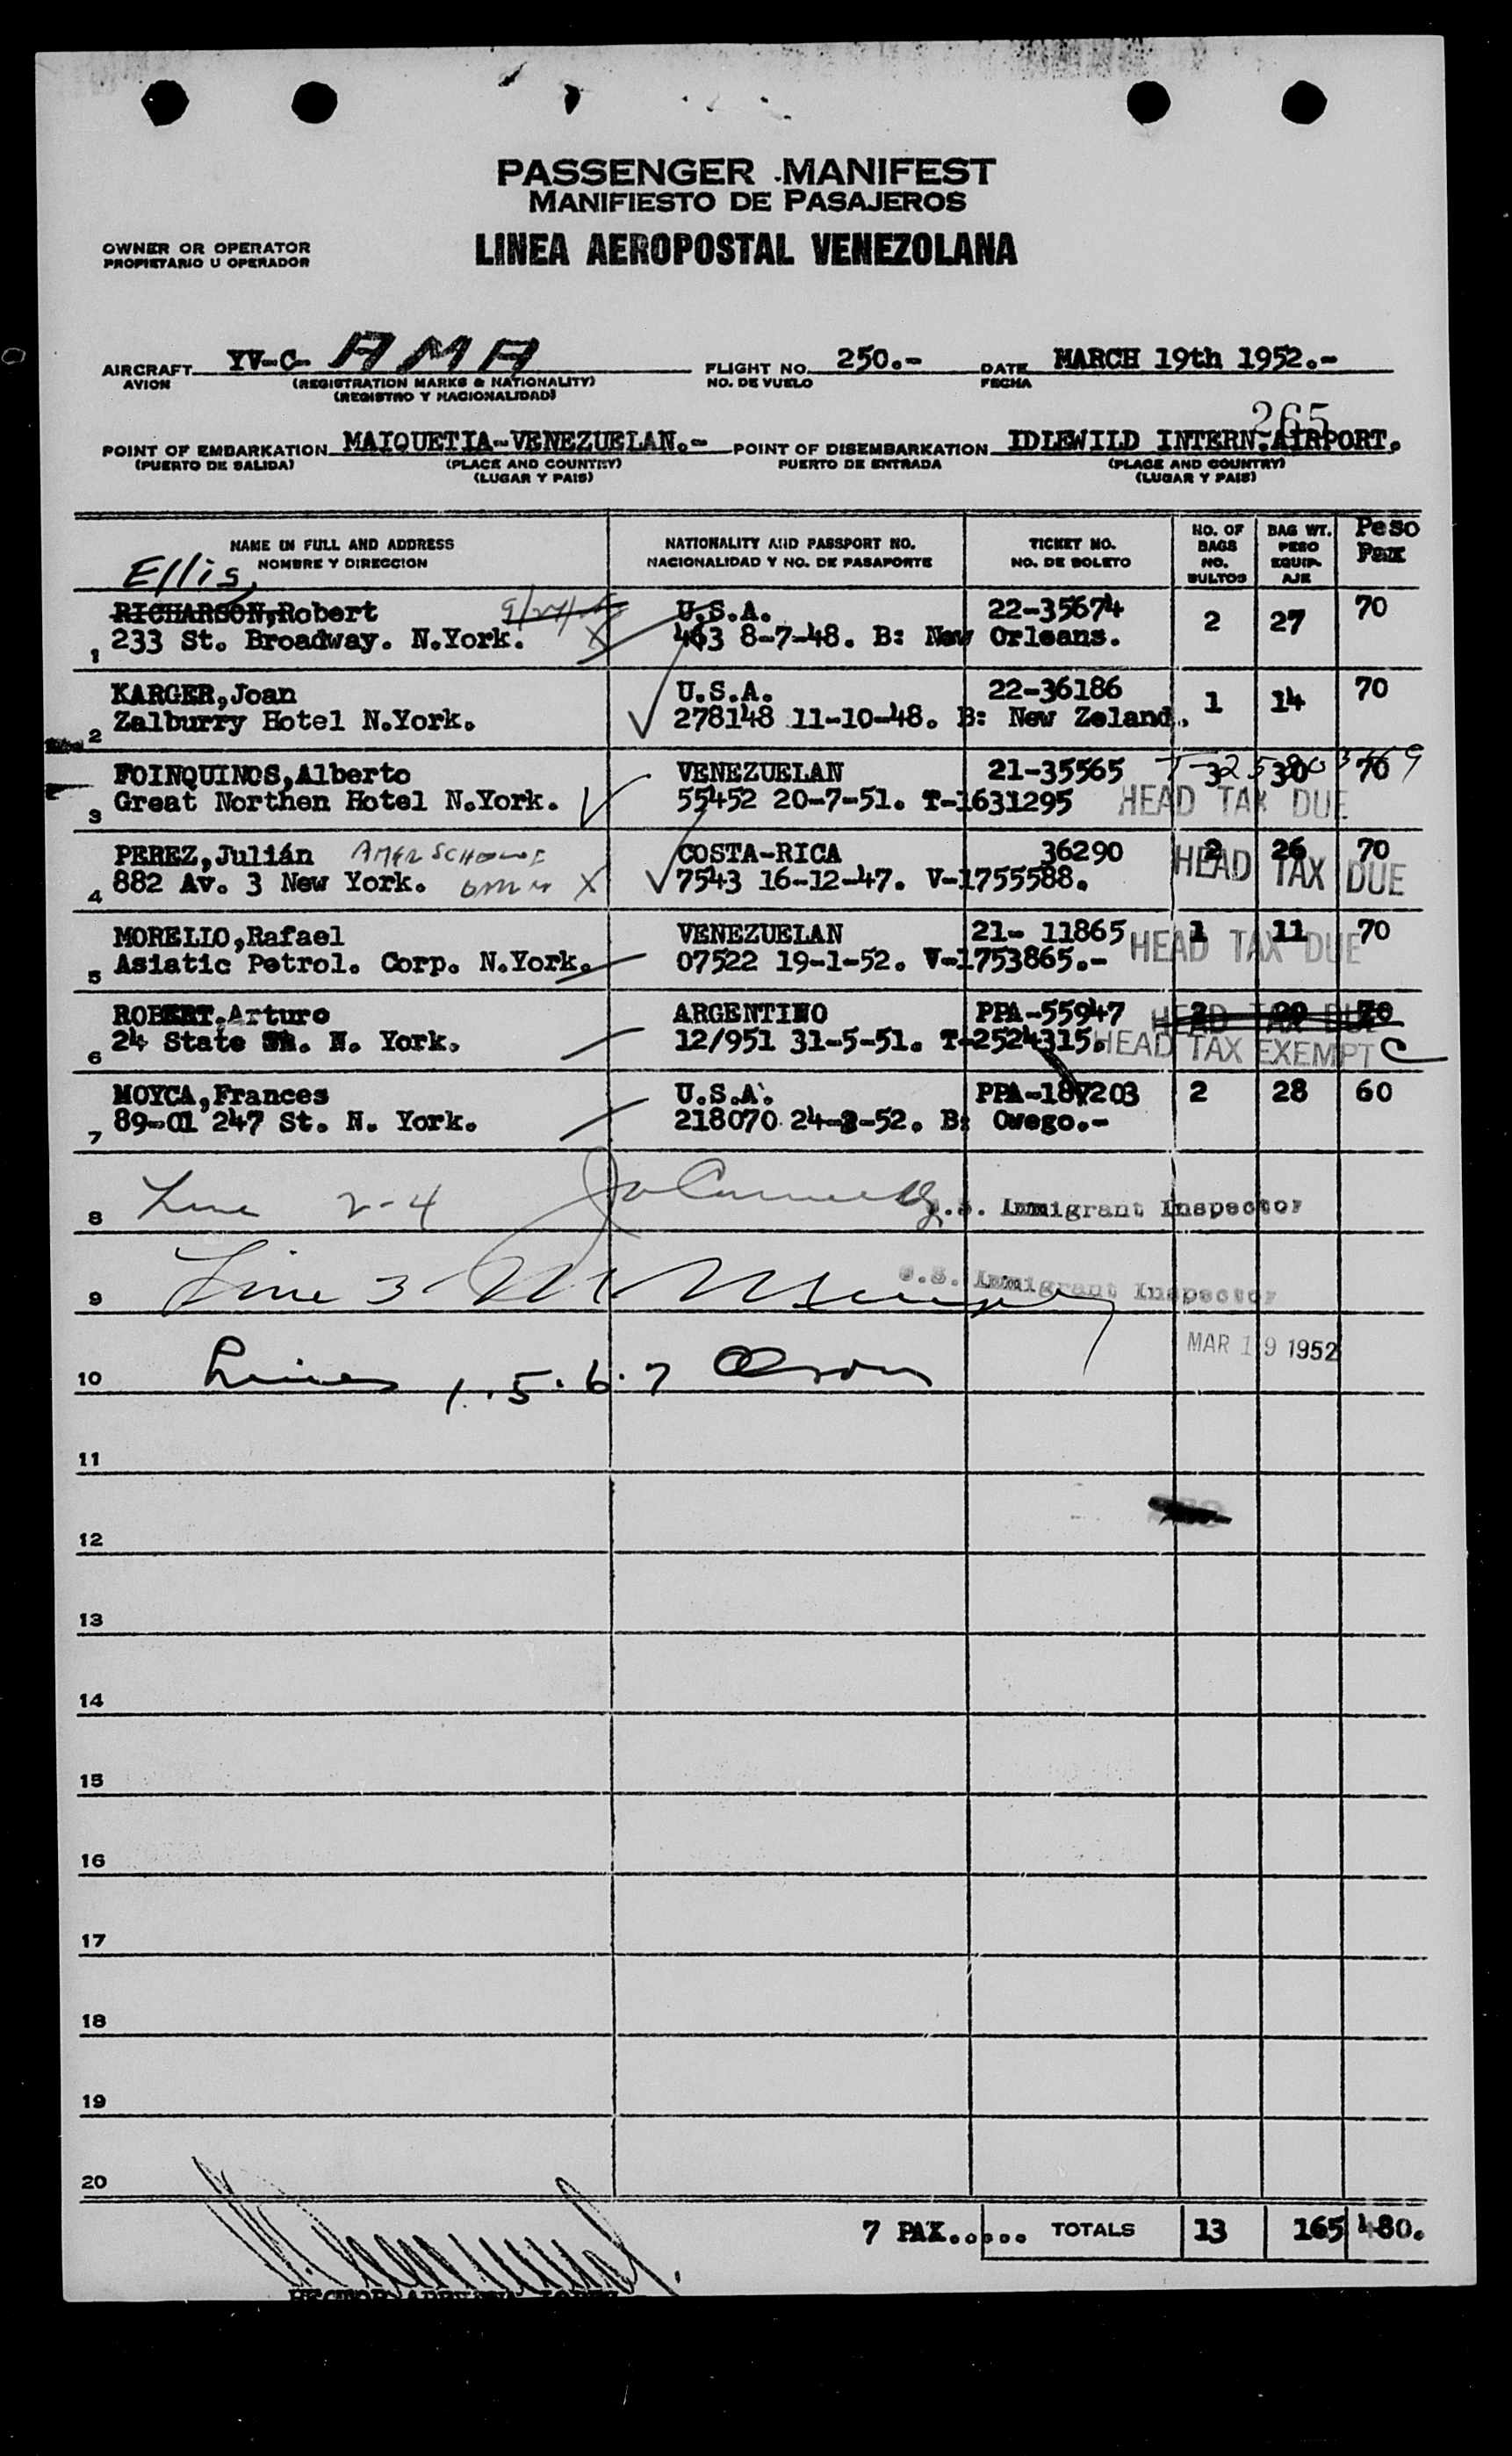 PASSENGER MANIFEST
MANIFIESTO DE PASAJEROS
OWNER OR OPERATOR
PROPIETARIO U OPERADOR
LINEA AEROPOSTAL VENEZOLANA
AIRCRAFT YV-C- AMA FLIGHT NO. 250.- DATE MARCH 19th 1952.-
AVION (REGISTRATION MARKS & NATIONALITY) NO. DE VUELO FECHA
(REGISTRO Y NACIONALIDAD)
265
POINT OF EMBARKATION MAIQUETIA-VENEZUELAN.- POINT OF DISEMBARKATION IDLEWILD INTERN.AIRPORT.
(PUERTO DE SALIDA) (PLACE AND COUNTRY) PUERTO DE ENTRADA (PLACE AND COUNTRY)
(LUGAR Y PAIS) (LUGAR Y PAIS)
NAME IN FULL AND ADDRESS NATIONALITY AND PASSPORT NO. TICKET NO. NO. OF BAGS BAG WT. Peso
NOMBRE Y DIRECCION NACIONALIDAD Y NO. DE PASAPORTE NO. DE BOLETO NO. BULTOS PESO EQUIP-AJE Pax
Ellis,
RICHARSON,Robert U.S.A. 22-35674 2 27 70
1 233 St. Broadway. N.York. X 463 8-7-48. B: New Orleans.
KARGER,Joan U.S.A. 22-36186 1 14 70
2 Zalburry Hotel N.York. 278148 11-10-48. B: New Zeland.
FOINQUINOS,Alberto VENEZUELAN 21-35565 3 30 70
3 Great Northen Hotel N.York. 55452 20-7-51. T-1631295 HEAD TAX DUE
PEREZ,Julián COSTA-RICA 36290 2 26 70
4 882 Av. 3 New York. X 7543 16-12-47. V-1755588. HEAD TAX DUE
MORELLO,Rafael VENEZUELAN 21- 11865 1 11 70
5 Asiatic Petrol. Corp. N.York. 07522 19-1-52. V-1753865.- HEAD TAX DUE
ROBERT.Arturo ARGENTINO PPA-55947 2 29 70 HEAD TAX DUE
6 24 State N. York. 12/951 31-5-51. T-2524315. HEAD TAX EXEMPT C
MOYCA,Frances U.S.A. PPA-187203 2 28 60
7 89-01 247 St. N. York. 218070 24-3-52. B: Owego.-
8 Line 2-4 U.S. Immigrant Inspector
9 Line 3 U.S. Immigrant Inspector
MAR 19 1952
10 Lines 1.5.6.7 Olson
11
12
13
14
15
16
17
18
19
20
7 PAX...... TOTALS 13 165 480.